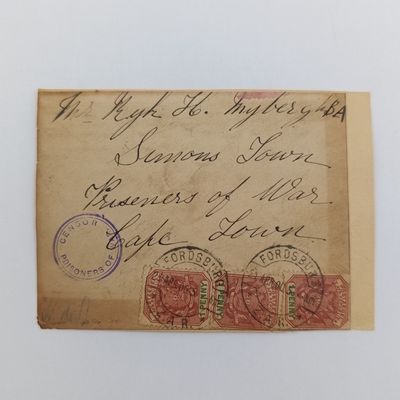 Mr Ryk H. Myburgh BA
Simons Town
Prisoners of War
Cape Town
CENSOR
PRISONERS OF
FORDSBURG
Z.A.R.
FORDSBURG
Z.A.R.
1 PENNY
PENNY
1 PENNY